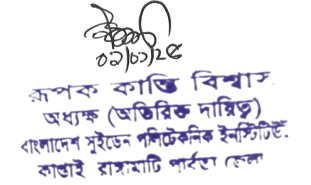 ০২/০১/২৫
রূপক কান্তি বিশ্বাস
অধ্যক্ষ (অতিরিক্ত দায়িত্ব)
বাংলাদেশ সুইডেন পলিটেকনিক ইনস্টিটিউট.
কাপ্তাই রাঙ্গামাটি পার্বত্য জেলা